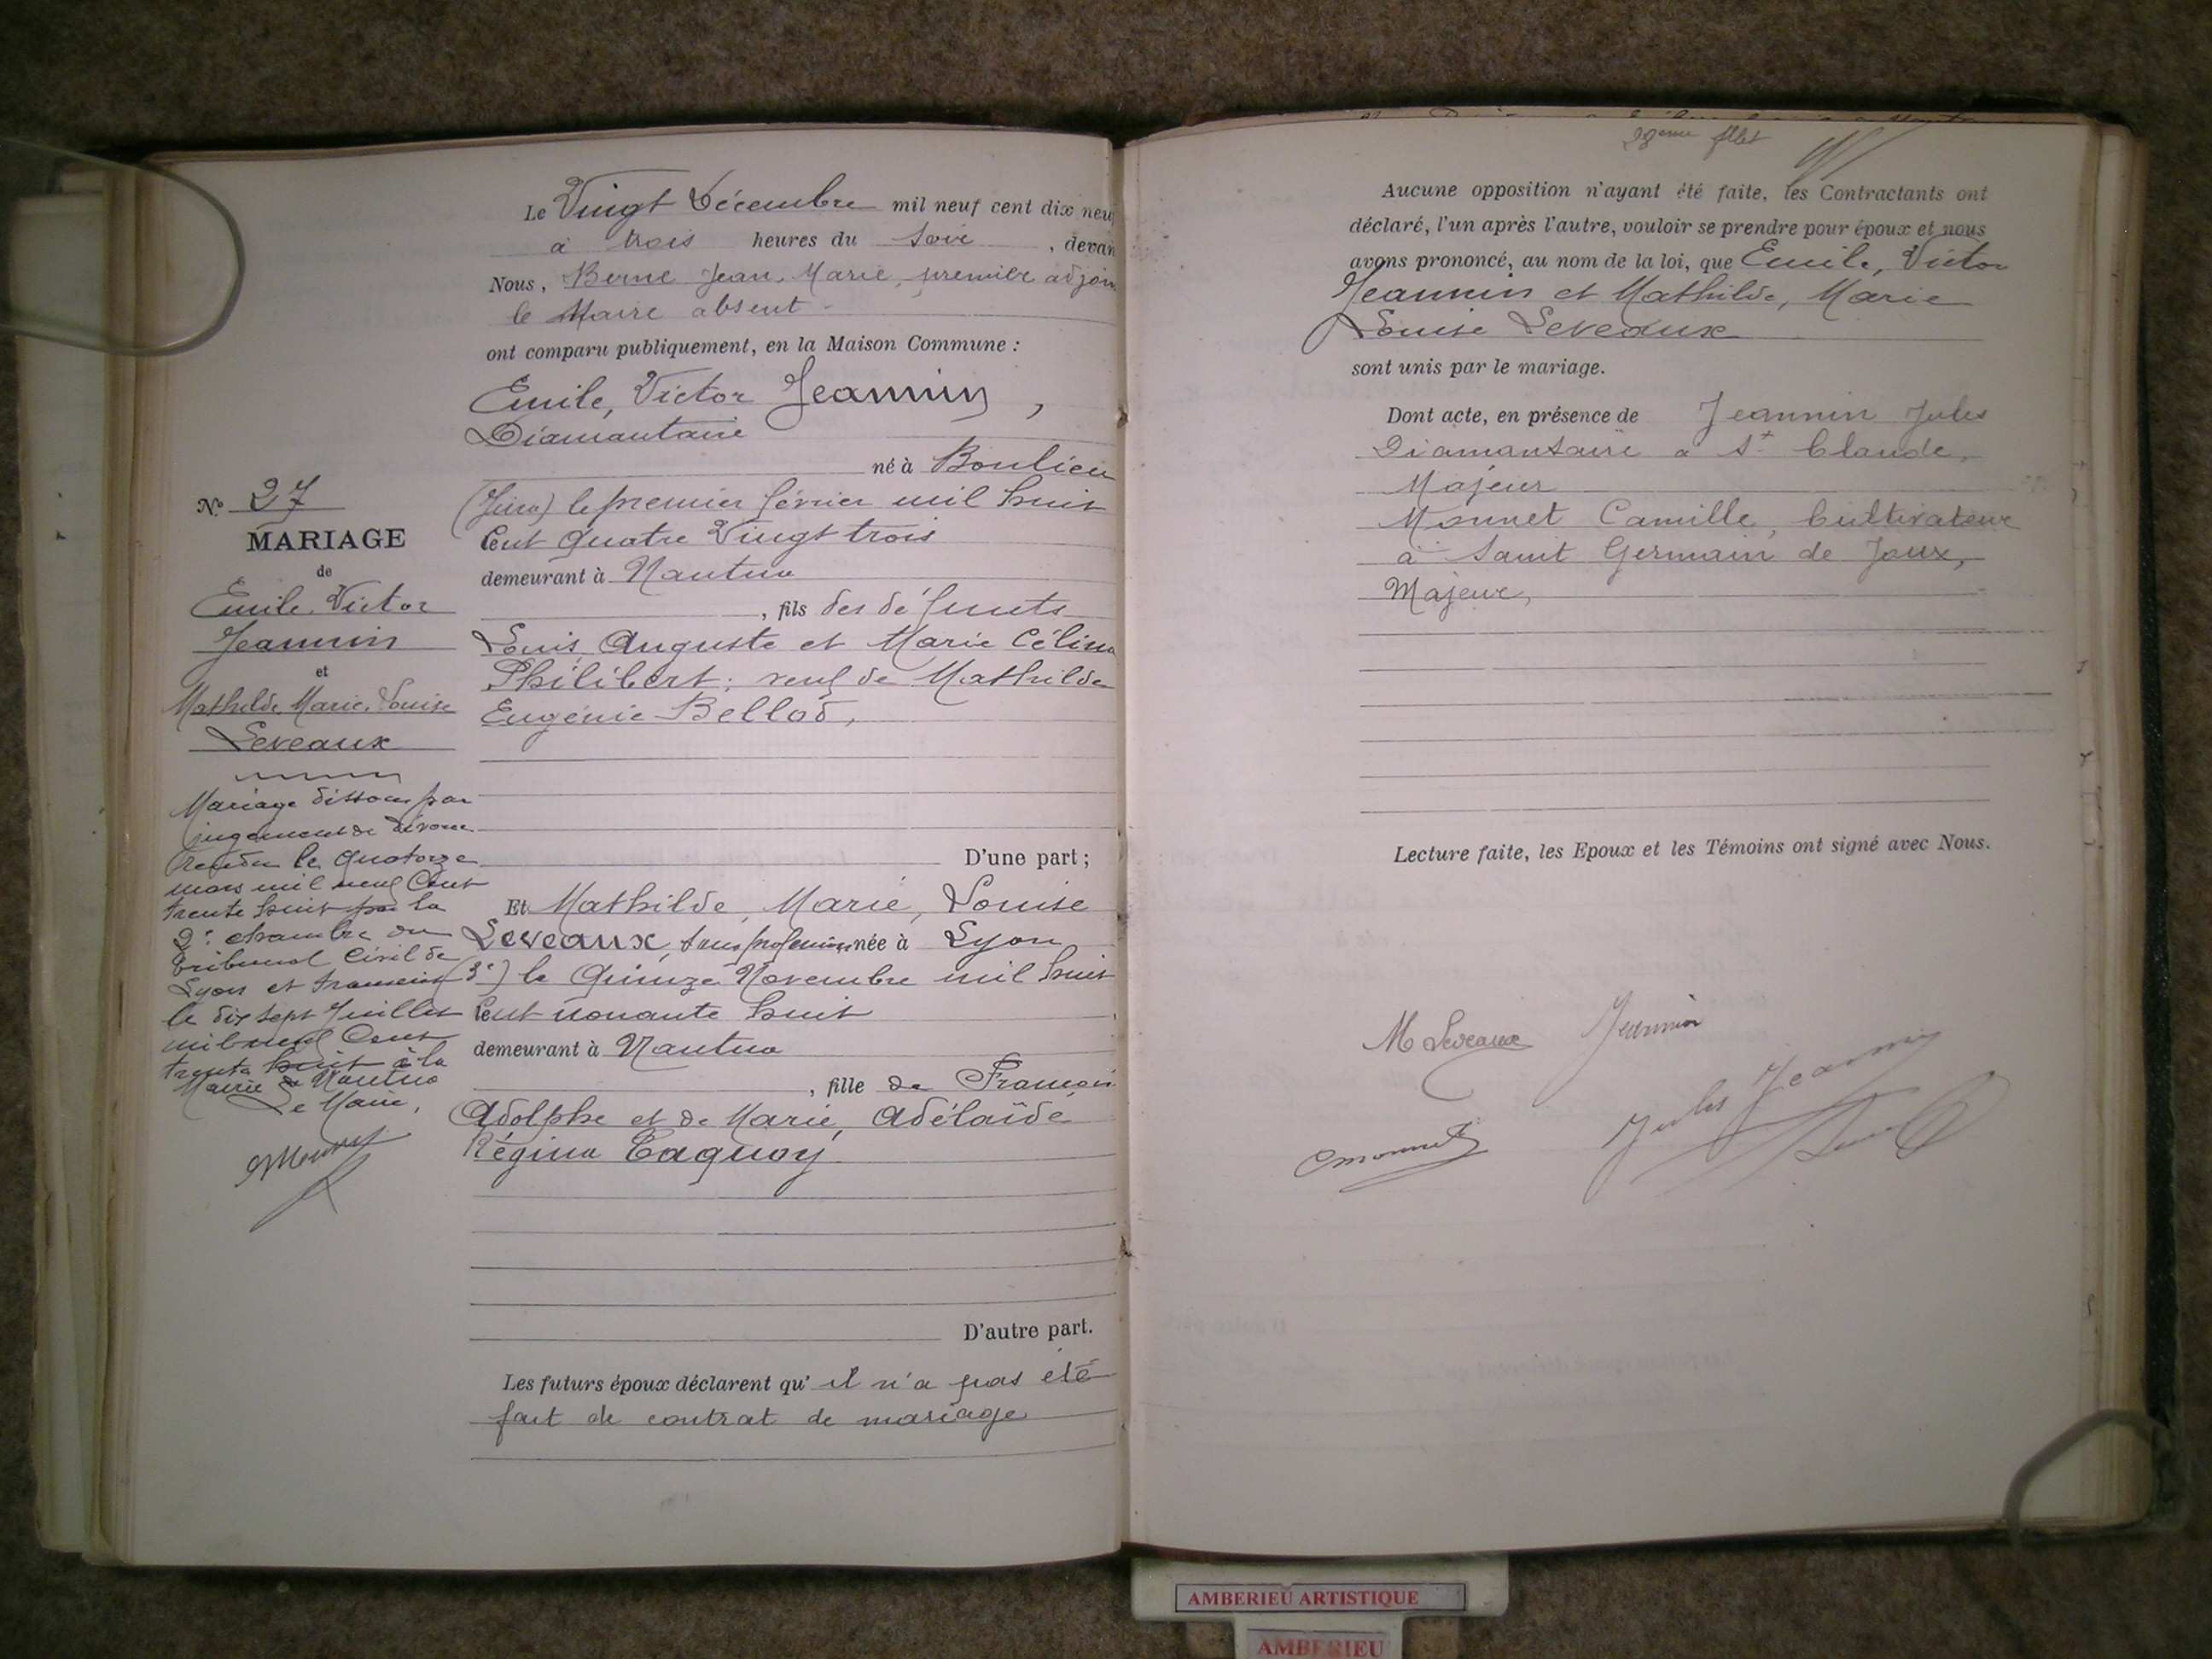 Le Vingt Décembre mil neuf cent dix neu
à trois heures du soir , devan
Nous, Berne Jean, Marie, premier adjoin
le Maire absent
ont comparu publiquement, en la Maison Commune :
Emile, Victor Jeannin,
Diamantaire
né à Boulieu
(Jura) le premier février mil huit
Cent quatre Vingt trois
demeurant à Nantua
, fils des défunts
Louis Auguste et Marie Célina
Philibert ; veuf de Mathilde
Eugénie Bellod,
D'une part ;
Et Mathilde, Marie, Louise
Leveaux, sans profession née à Lyon
(3e) le Quinze Novembre mil huit
Cent nonante huit
demeurant à Nantua
, fille de François
Adolphe et de Marie, Adélaïde
Régina Taguoy
D'autre part.
Les futurs époux déclarent qu' il n'a pas été
fait de contrat de mariage
N° 27
MARIAGE
de
Emile, Victor
Jeannin
et
Mathilde, Marie, Louise
Leveaux
Mariage dissous par
jugement de divorce
rendu le quatorze
mars mil neuf Cent
trente huit par la
2e chambre du
Tribunal Civil de
Lyon et transcrit
le dix sept Juillet
mil neuf Cent
trente huit à la
Mairie de Nantua
Le Maire,
28eme fllet
Aucune opposition n'ayant été faite, les Contractants ont
déclaré, l'un après l'autre, vouloir se prendre pour époux et nous
avons prononcé, au nom de la loi, que Emile, Victor
Jeannin et Mathilde, Marie
Louise Leveaux
sont unis par le mariage.
Dont acte, en présence de Jeannin Jules
Diamantaire à St Claude,
Majeur
Monnet Camille, Cultivateur
à Saint Germain de Joux,
Majeur,
Lecture faite, les Epoux et les Témoins ont signé avec Nous.
M Leveaux Jeannin
Jules Jeannin
C Monnet
AMBERIEU ARTISTIQUE
AMBERIEU